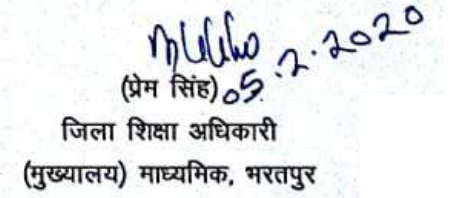 05.2.2020
(प्रेम सिंह)
जिला शिक्षा अधिकारी
(मुख्यालय) माध्यमिक, भरतपुर